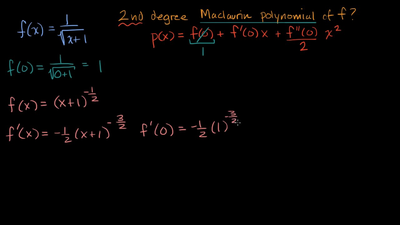 f(x) = 1/√(x+1)
2nd degree Maclaurin polynomial of f?
p(x) = f(0) + f'(0)x + f''(0)/2 x²
1
f(0) = 1/√(0+1) = 1
f(x) = (x+1)^(-1/2)
f'(x) = -1/2 (x+1)^(-3/2)
f'(0) = -1/2 (1)^(-3/2)